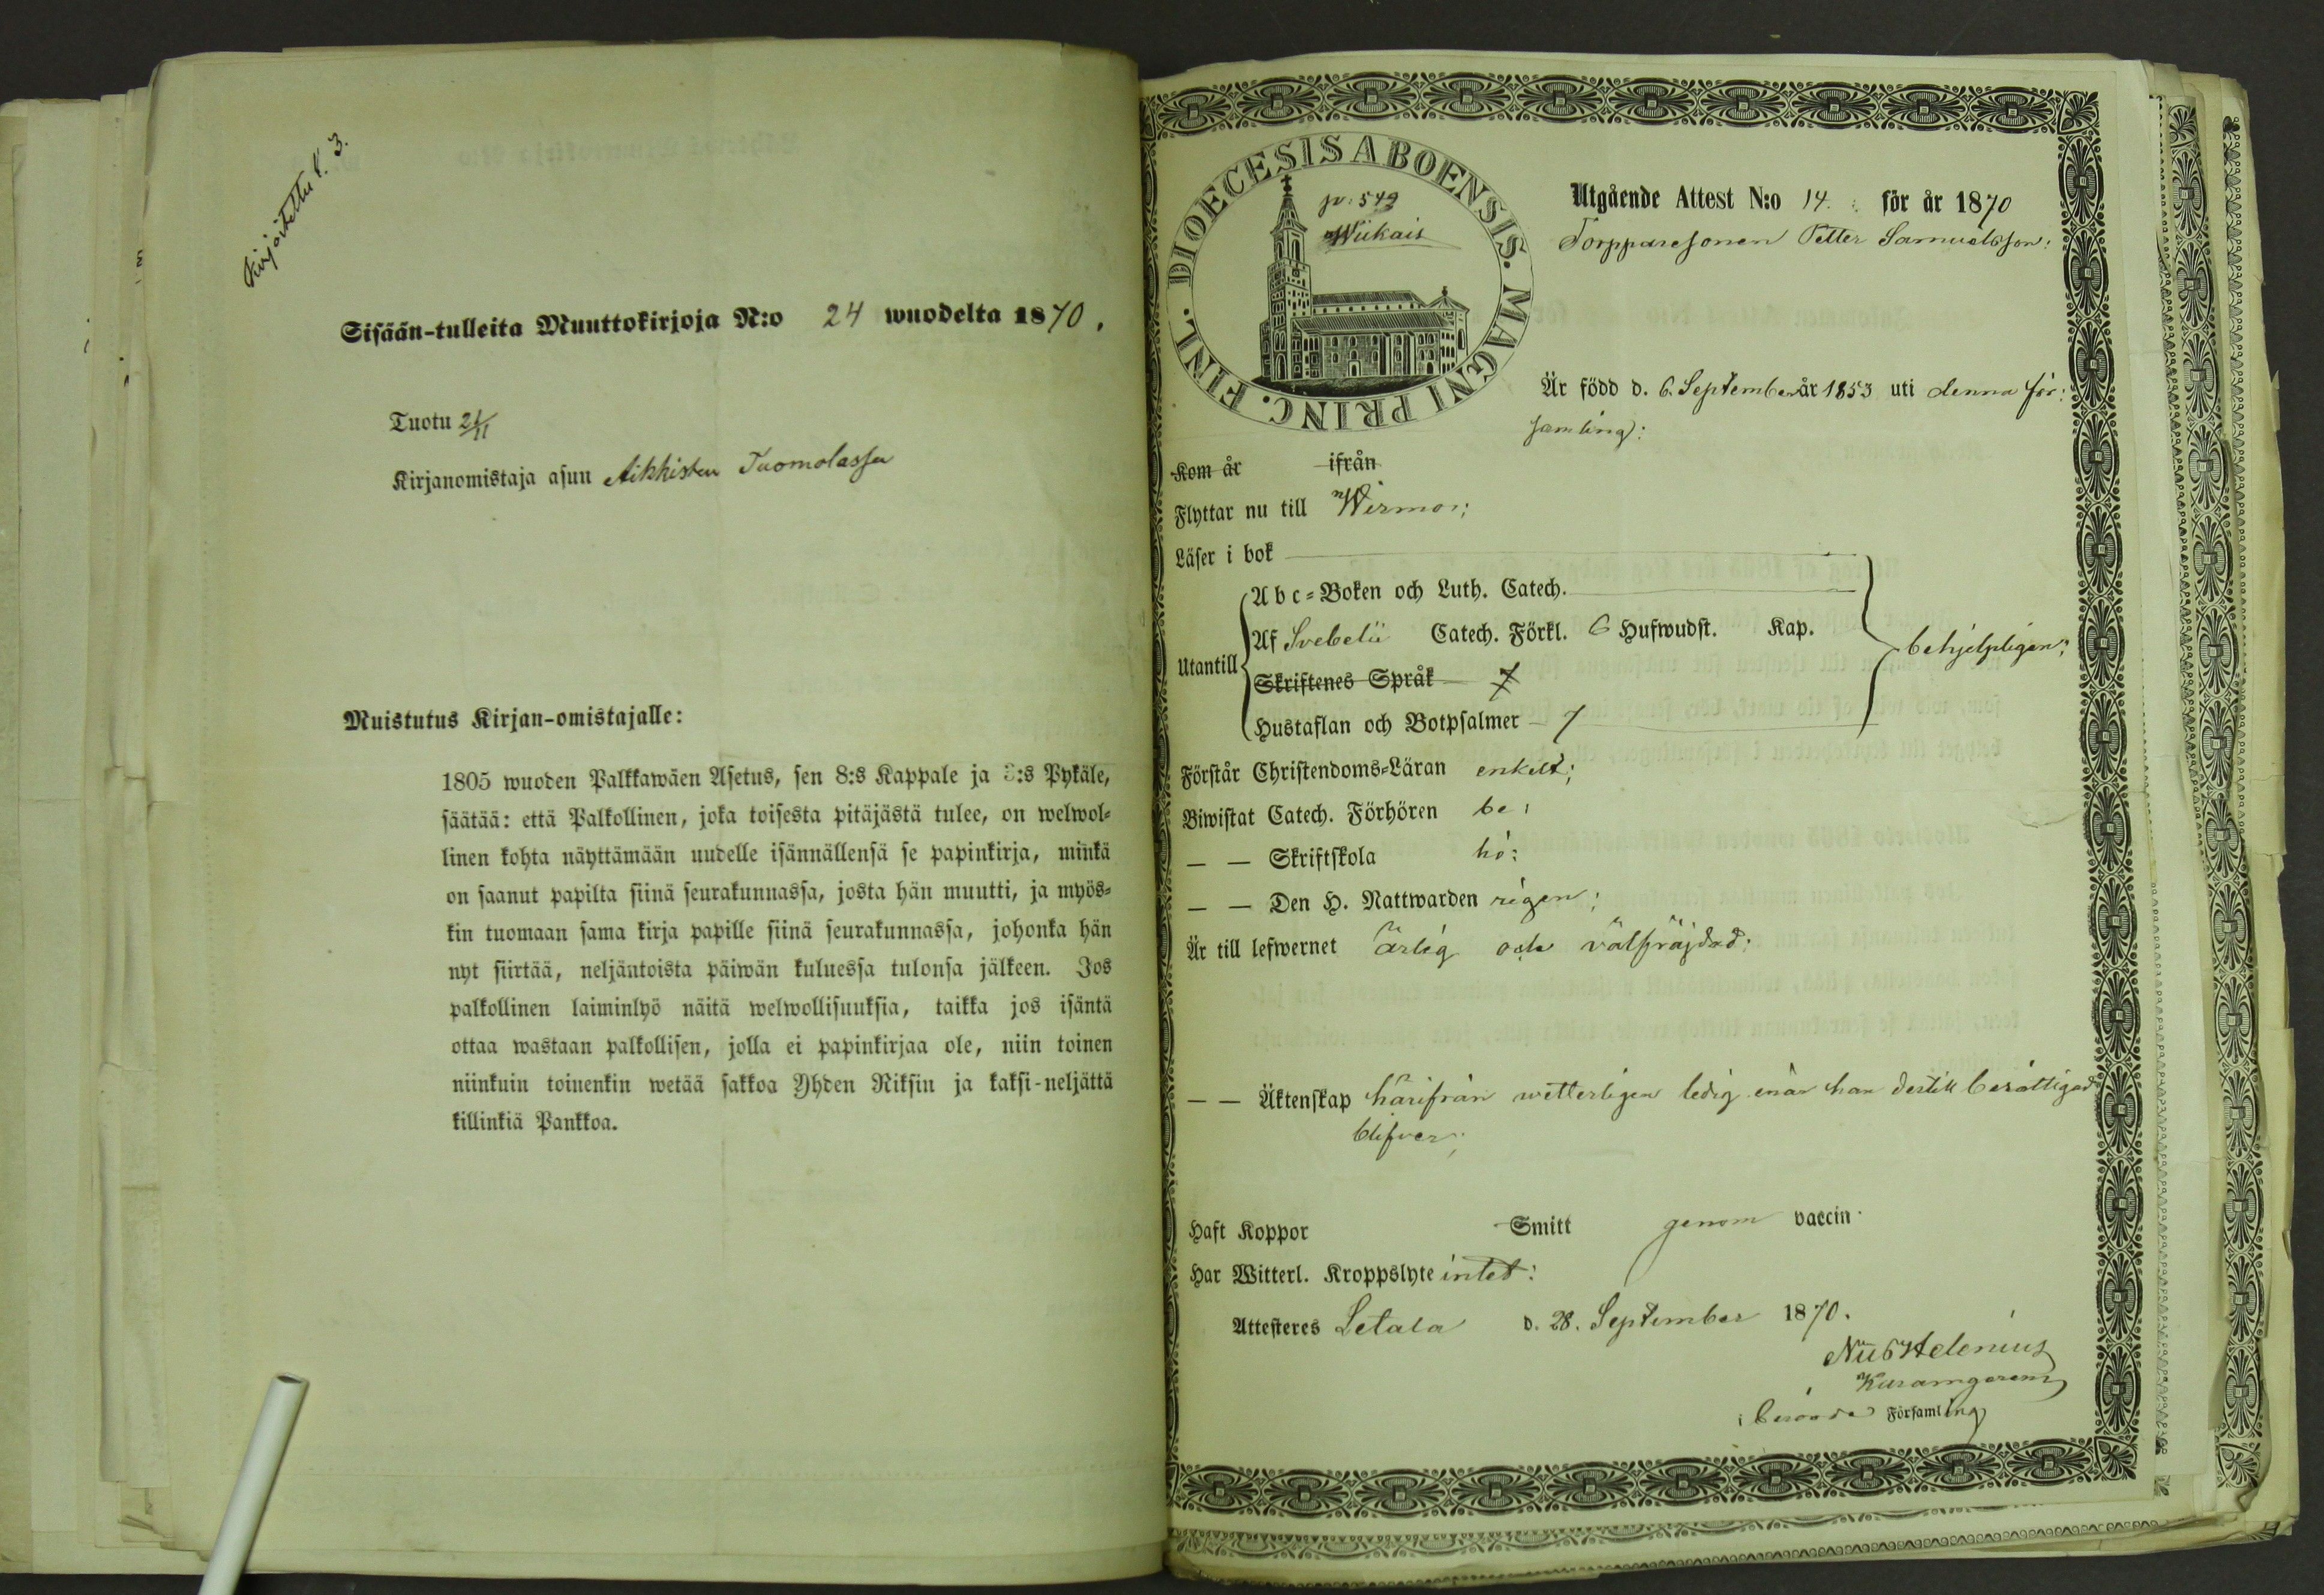 Kirjoitettu s. 3.
Sisään-tulleita Muuttokirjoja N:o 24 wuodelta 1870.
Tuotu 21/11
Kirjanomistaja asuu Aikkisten Tuomolassa
Muistutus Kirjan-omistajalle:
1805 wuoden Palkkawäen Asetus, sen 8:s Kappale ja 3:s Pykäle,
säätää: että Palkollinen, joka toisesta pitäjästä tulee, on welwol-
linen kohta näyttämään uudelle isännällensä se papinkirja, minkä
on saanut papilta siinä seurakunnassa, josta hän muutti, ja myös-
kin tuomaan sama kirja papille siinä seurakunnassa, johonka hän
nyt siirtää, neljäntoista päiwän kuluessa tulonsa jälkeen. Jos
palkollinen laiminlyö näitä welwollisuuksia, taikka jos isäntä
ottaa wastaan palkollisen, jolla ei papinkirjaa ole, niin toinen
niinkuin toinenkin wetää sakkoa Yhden Riksin ja kaksi-neljättä
killinkiä Pankkoa.
DIOECESIS ABOENSIS. MAGNI PRINC. FINL.
p: 549
Wiikais
Utgående Attest N:o 14. för år 1870
Torpparesonen Petter Samuelsson:
Är född d. 6. September år 1853 uti denna för:
samling:
Kom år ifrån
Flyttar nu till Wirmo;
Läser i bok
Utantill
Abc-Boken och Luth. Catech.
Af Svebelii Catech. Förkl. 6 Hufwudst. Kap.
behjelpligen;
Skriftenes Språk 7
Hustaflan och Botpsalmer 7
Förstår Christendoms-Läran enkelt;
Biwistat Catech. Förhören be:
— — Skriftskola hö:
— — Den H. Nattwarden rigen;
Är till lefwernet ärlig och välfräjdad:
— — Äktenskap härifrån wetterligen ledig enär han dertill berättigad
blifver;
Haft Koppor Smitt genom vaccin
Har Witterl. Kroppslyte intet:
Attesteres Letala d. 28. September 1870.
Helenius
i berörde Församling